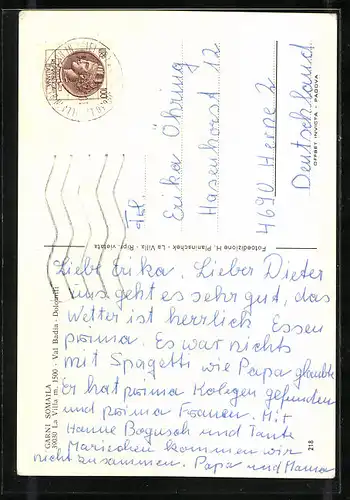 Liebe Erika, Lieber Dieter
uns geht es sehr gut, das
Wetter ist herrlich Essen
prima. Es war nichts
mit Spagetti wie Papa glaubte
Er hat prima Kolegen gefunden
und prima Frauen. Mit
Hanne Bogusch und Tante
Mariechen kommen wir
nicht zusammen. Papa und Mama
Erika Öhring
Hasenhorst 12
4690 Herne 2
Deutschland
GARNI SOMAILA
39030 La Villa m. 1500 - Val Badia - Dolomiti
218
Fotoedizione H. Planinschek - La Villa - Ripr. vietata
OFFSET INVICTA - PADOVA
100